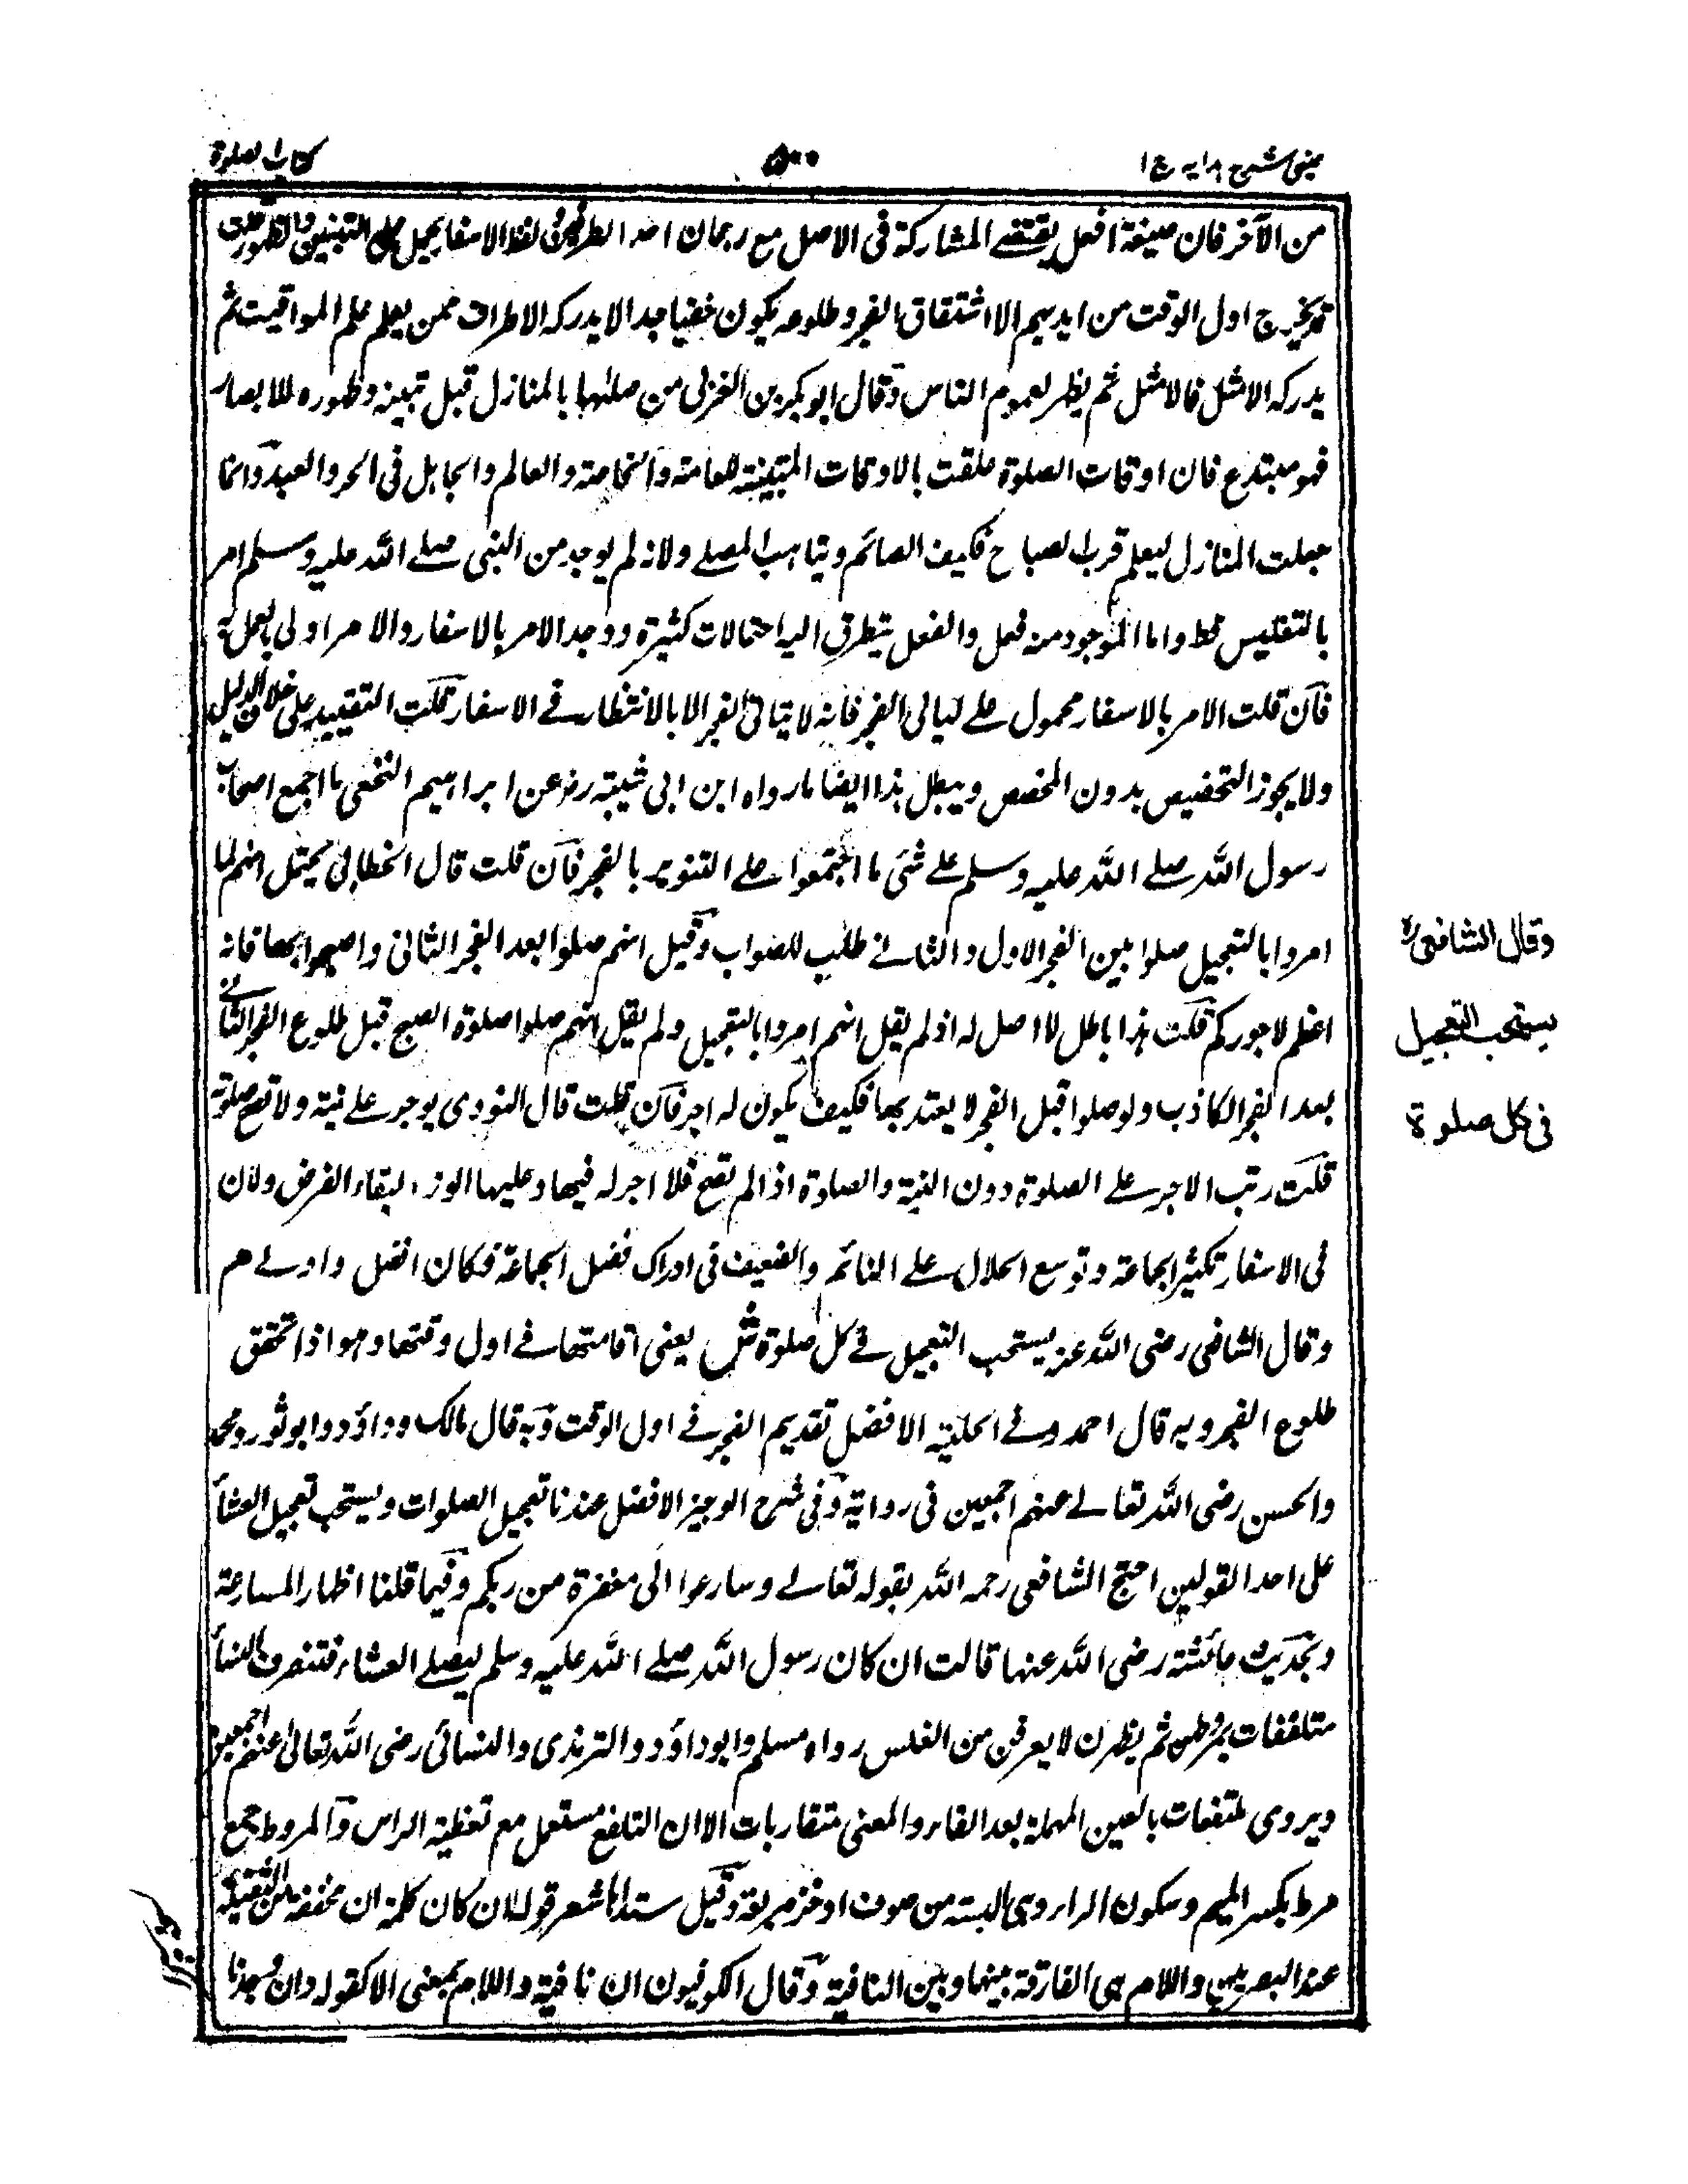 عینی شرح هدایه ج ۱
۵۰۰
کتاب الصلوة
من الآخر فان صيغة افعل يقتضے المشاركة فى الاصل مع رجحان احد الطرفين لفظ الاسفار يحيل على التبيين والظهور
اول الوقت من ايديهم الا اشتقاق الفجر وطلوعه يكون خفيا جدا لا يدركه الا طراف ممن يعلم علم المواقيت ثم
يدركه الامثل فالامثل ثم يظهر لعموم الناس وقال ابو بكر بن العزلى من صلٰها بالمنازل قبل تبينه وظهوره للابصار
فهو مبتدع فان اوقات الصلوة علقت بالاوقات المتبينة للعامة والخاصة والعالم والجاهل فى الحر والعبد وانما
جعلت المنازل ليعلم قرب الصباح فكيف الصائم ويتاهب المصلے ولانه لم يوجد من النبى صلے الله عليه وسلم امر
بالتغليس قط واما الموجود منه فعل والفعل يتطرق اليه احتمالات كثيرة ووجد الامر بالاسفار والامر اولى بالعمل به
فان قلت الامر بالاسفار محمول علے ليالى الفجر فانه لا يتاتى الفجر الا بالانتظار فے الاسفار قلت التقييد على خلاف الدليل
ولا يجوز التخصيص بدون المخصص ويبطل هذا ايضا ما رواه ابن ابى شيبة رم عن ابراهيم النخعى ما اجمع اصحاب
رسول الله صلے الله عليه وسلم علے شئ ما اجتمعوا علے التنوير بالفجر فان قلت قال الخطابى يحتمل انهم لما
امروا بالتعجيل صلوا بين الفجر الاول والثانے طلب للصواب وقيل انهم صلوا بعد الفجر الثانى واصبحوا بها فانه
اعظم لاجوركم قلت هذا باطل لا اصل له اذ لم يقل انهم امروا بالتعجيل ولم يقل انهم صلوا صلوة الصبح قبل طلوع الفجر الثانے
بعد الفجر الكاذب ولو صلوا قبل الفجر لا يعتد بها فكيف يكون له اجر فان قلت قال النووى يوجر علے نية ولا تصح صلوته
قلت رتب الاجر علے الصلوة دون النية والصلوة اذا لم تصح فلا اجر له فيها وعليها الوزر لبقاء الفرض ولان
فى الاسفار تكثير الجماعة وتوسع الحلال علے النائم والضعيف فى ادراك فضل الجماعة فكان افضل واولے هم
وقال الشافعى رضى الله عنه يستحب التعجيل فے كل صلوة ش يعنى اقامتها فے اول وقتها وهو اذا تحقق
طلوع الفجر وبه قال احمد وفے الحلية الافضل تقديم الفجر فے اول الوقت وبه قال مالك وداؤد وابو ثور ومحمد
والحسن رضى الله تعالے عنهم اجمعين فى رواية وفى شرح الوجيز الافضل عندنا تعجيل الصلوات ويستحب تعجيل العشا
على احد القولين احتج الشافعى رحمه الله بقوله تعالے وسارعوا الى مغفرة من ربكم وفيما قلنا اظهار المسارعة
وبحديث عائشة رضى الله عنها قالت ان كان رسول الله صلے الله عليه وسلم ليصلے العشاء فتنصرف النسا
متلففات بمروطهن ثم يظهرن لا يعرفن من الغلس رواه مسلم وابو داؤد والترمذى والنسائى رضى الله تعالى عنهم اجمعين
ويروى ملتفعات بالعين المهملة بعد الفاء والمعنى متقاربات الا ان التلفع مستعمل مع تغطية الراس والمروط جمع
مرط بكسر الميم وسكون الراء وهى البسته من صوف او خز مربعة وقيل سداها شعر قوله ان كان كلمة ان مخففة من الثقيلة
عند البصريين واللام هى الفارقة بينها وبين النافية وقال الكوفيون ان نافية واللام بمعنى الا كقوله وان وجدنا
وقال الشافعى رہ
يستحب التعجيل
فى كل صلوة